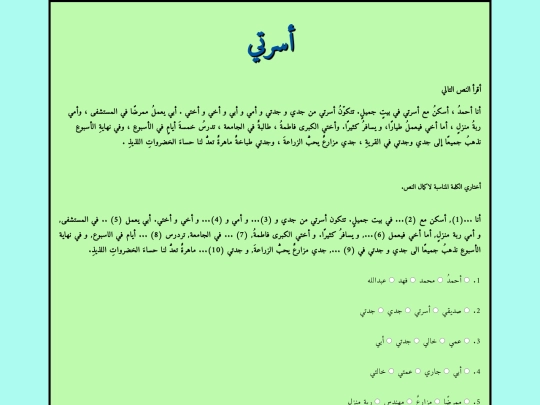 أسرتي
أقرأ النص التالي
أنا أحمدُ ، أسكنُ مع أسرتي في بيتٍ جميلٍ. تتكوّنُ أسرتي من جدي و جدتي و أمي و أبي و أخي و أختي . أبي يعملُ ممرضًا في المستشفى ، وأمي
ربةُ منزلٍ ، أما أخي فيعملُ طيارًا، و يسافرُ كثيرًا. وأختي الكبرى فاطمةُ ، طالبةٌ في الجامعة ، تدرسُ خمسةَ أيامٍ في الأسبوع ، وفي نهايةِ الأسبوع
نذهبُ جميعًا إلى جدي وجدتي في القريةِ ، جدي مزارعٌ يحبُّ الزراعةَ ، وجدتي طباخةٌ ماهرةٌ تعدُّ لنا حساءَ الخضرواتِ اللذيذِ .
أختاري الكلمة المناسبة لاكمال النص.
أنا ...(1), أسكن مع (2)... في بيت جميلٍ. تتكون أسرتي من جدي و (3)... و أمي و (4)... و أخي و أختي. أبي يعمل (5) .. في المستشفى,
و أمي ربة منزلٍ, أما أخي فيعمل (6)..., و يسافرُ كثيرًا. و أختي الكبرى فاطمةُ, (7) ... في الجامعة, تردرس (8) ... أيام في الاسبوع, و في نهاية
الأسبوع نذهبُ جميعًا الى جدي و جدتي في (9) ..., جدي مزارعٌ يحبُّ الزراعةَ, و جدتي (10)... ماهرةٌ تعدُّ لنا حساءَ الخضرواتِ اللذيذِ.
1. أحمدُ محمد فهد عبدالله
2. صديقي أسرتي جدي جدتي
3. عمي خالي جدتي أبي
4. أبي جاري عمتي خالتي
5. ممرضًا مزارعُ مهندس ربة منزل